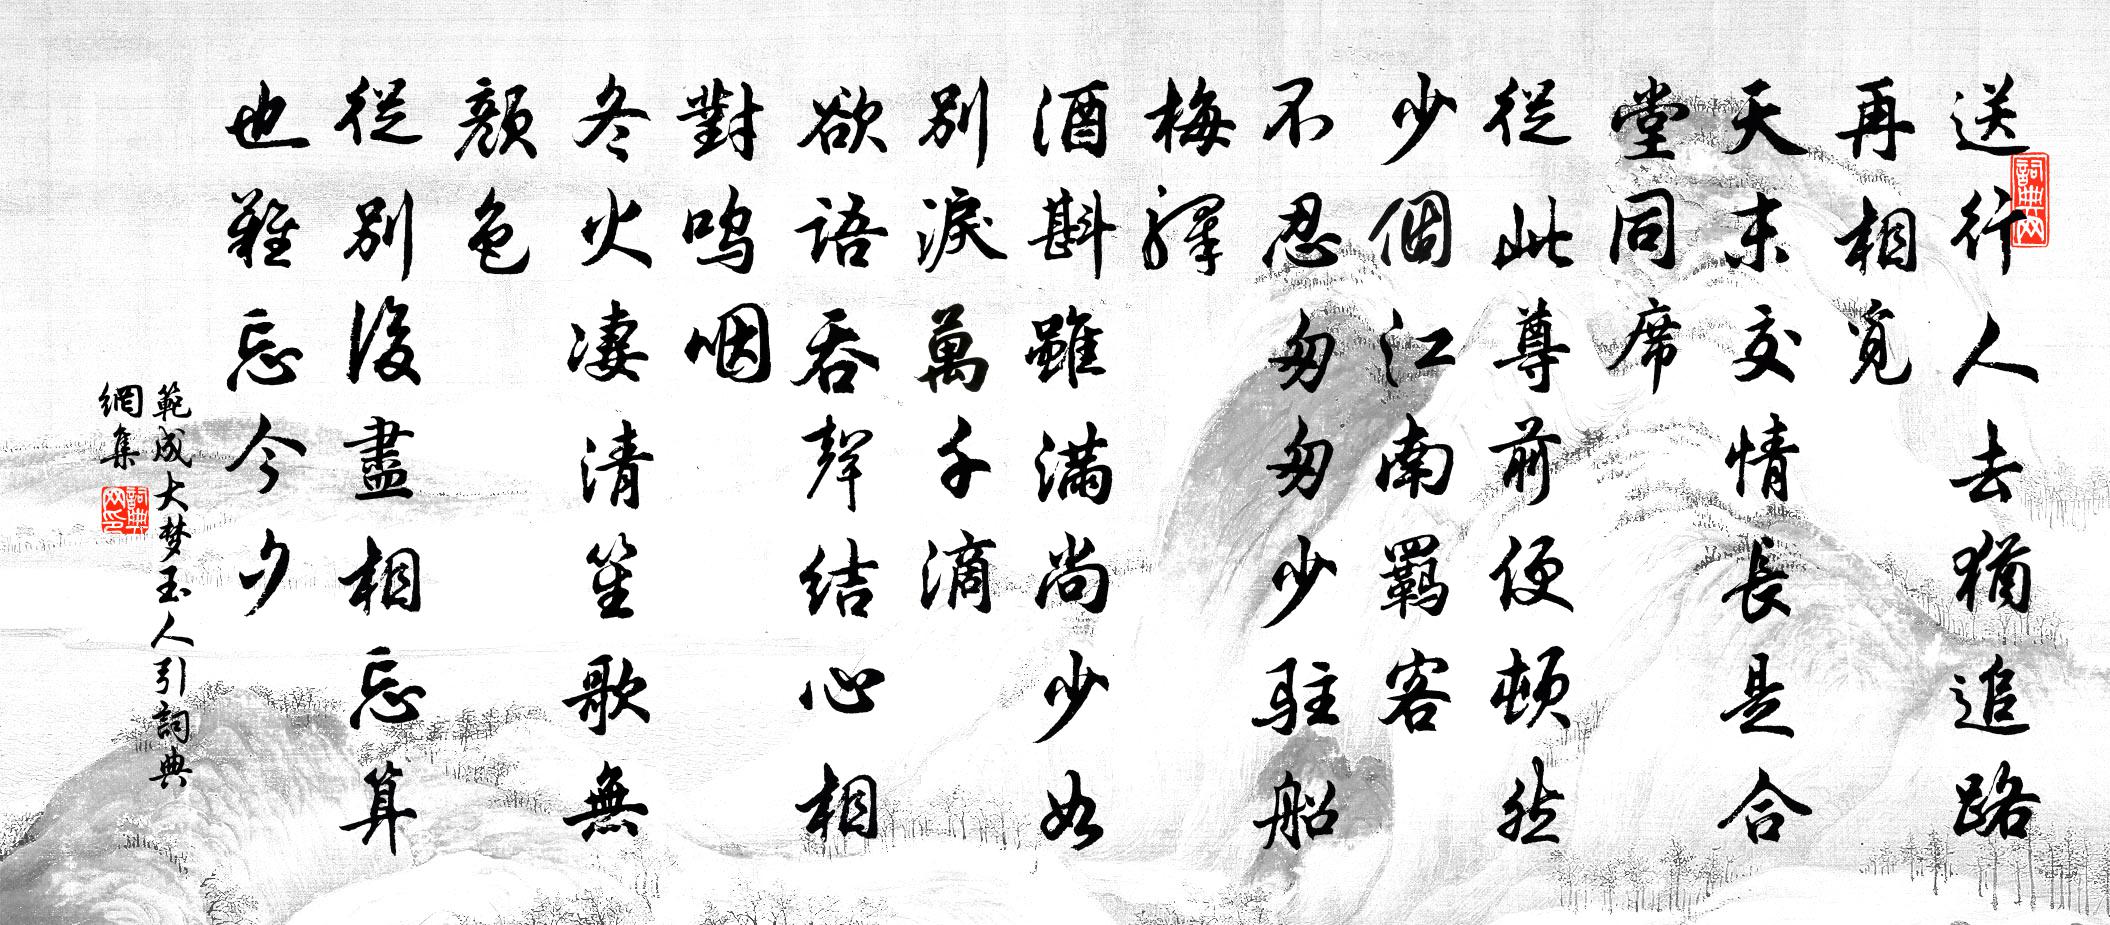 送行人去猶追路
再相覓
天末交情長是合
堂同席
從此尊前便頓然
少個江南羈客
不忍匆匆少駐船
梅驛
酒斟雖滿尚少如
別淚萬千滴
欲語吞聲結心相
對嗚咽
冬火凄清笙歌無
顏色
從別後盡相忘算
也難忘今夕
範成大梦玉人引詞典
網集
詞典网
詞典网印